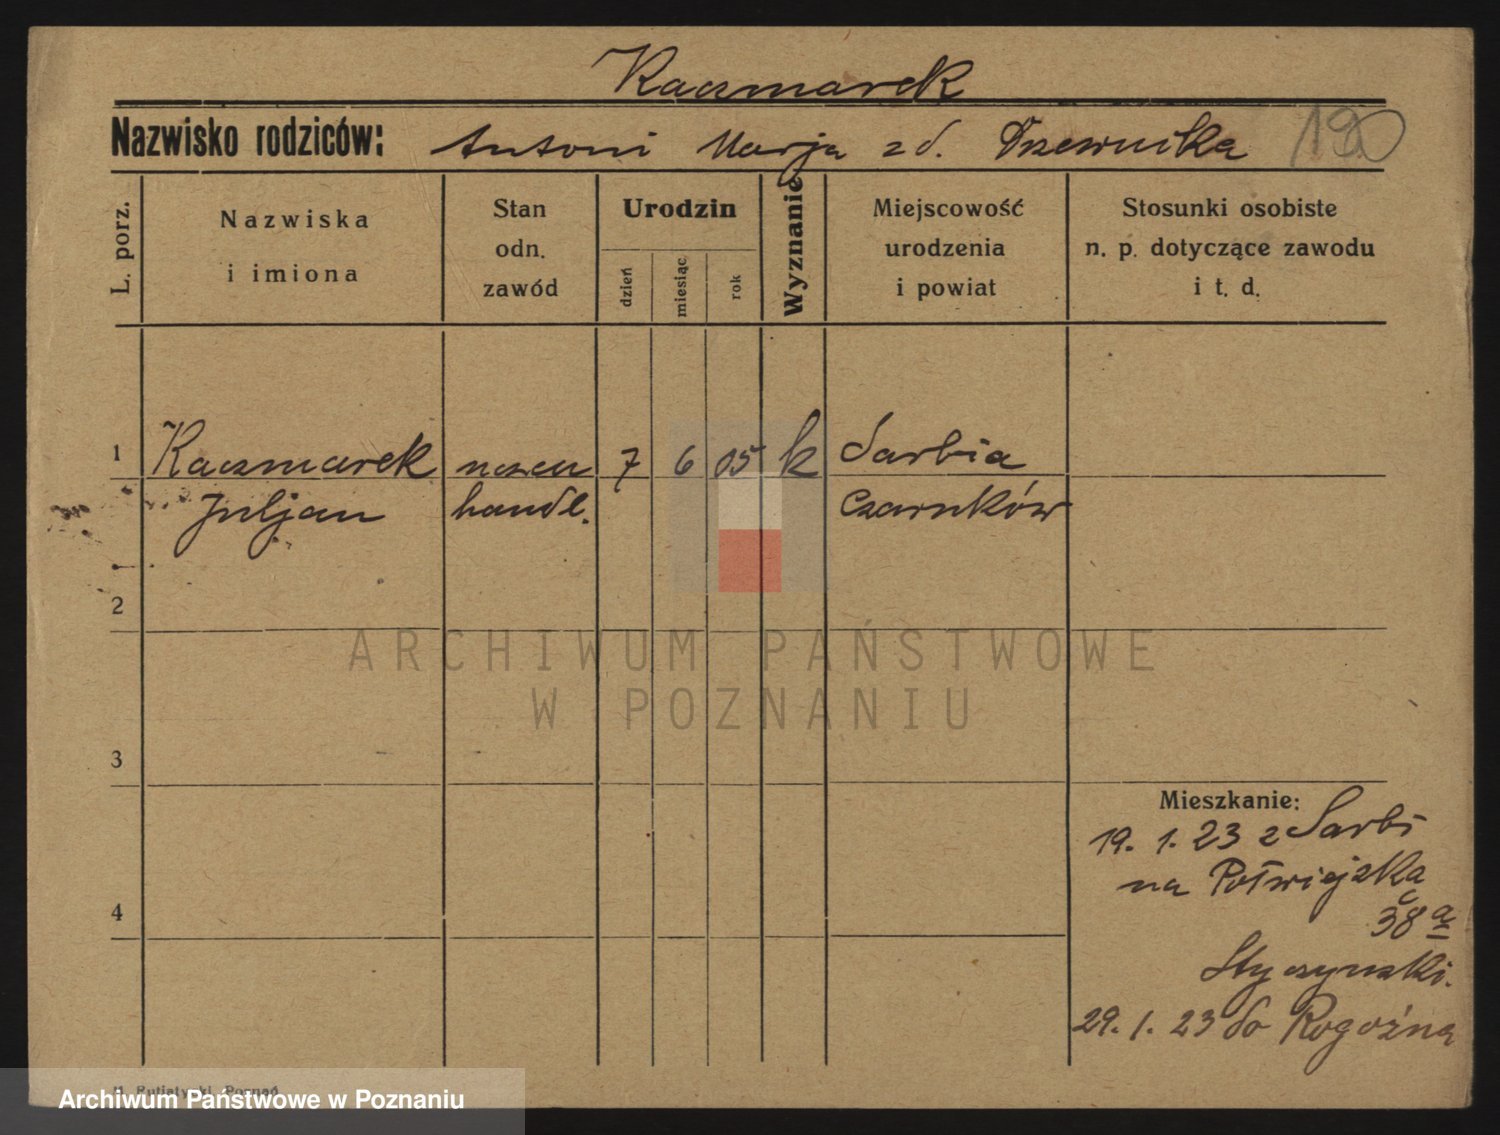 Kaczmarek
Nazwisko rodziców: Antoni Marja z d. Drzewnika 190
L. porz.
Nazwiska
i imiona
Stan
odn.
zawód
Urodzin
dzień
miesiąc
rok
Wyznanie
Miejscowość
urodzenia
i powiat
Stosunki osobiste
n. p. dotyczące zawodu
i t. d.
1 Kaczmarek uczeń 7 6 05 k Sarbia
Juljan handl. Czarnków
2
ARCHIWUM PAŃSTWOWE
W POZNANIU
3
Mieszkanie:
19. 1. 23 z Sarbi
na Półwiejską
38 a
4
Styczyński.
29. 1. 23 do Rogoźna
Poznań
Archiwum Państwowe w Poznaniu